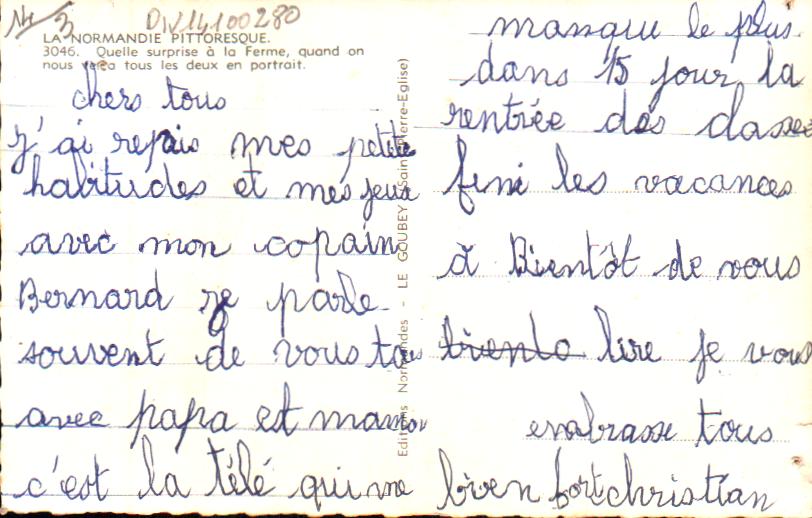 DIV14100280
LA NORMANDIE PITTORESQUE.
3046. Quelle surprise à la Ferme, quand on
nous verra tous les deux en portrait.
chers tous
j'ai repris mes petites
habitudes et mes jeux
avec mon copain
Bernard je parle
souvent de vous tous
avec papa et maman
c'est la télé qui me
Editions Normandes - LE GOUBEY - Saint-Pierre-Eglise)
manque le plus
dans 15 jour la
rentrée des classes
fini les vacances
à Bientôt de vous
biento lire je vous
embrasse tous
bien fort christian